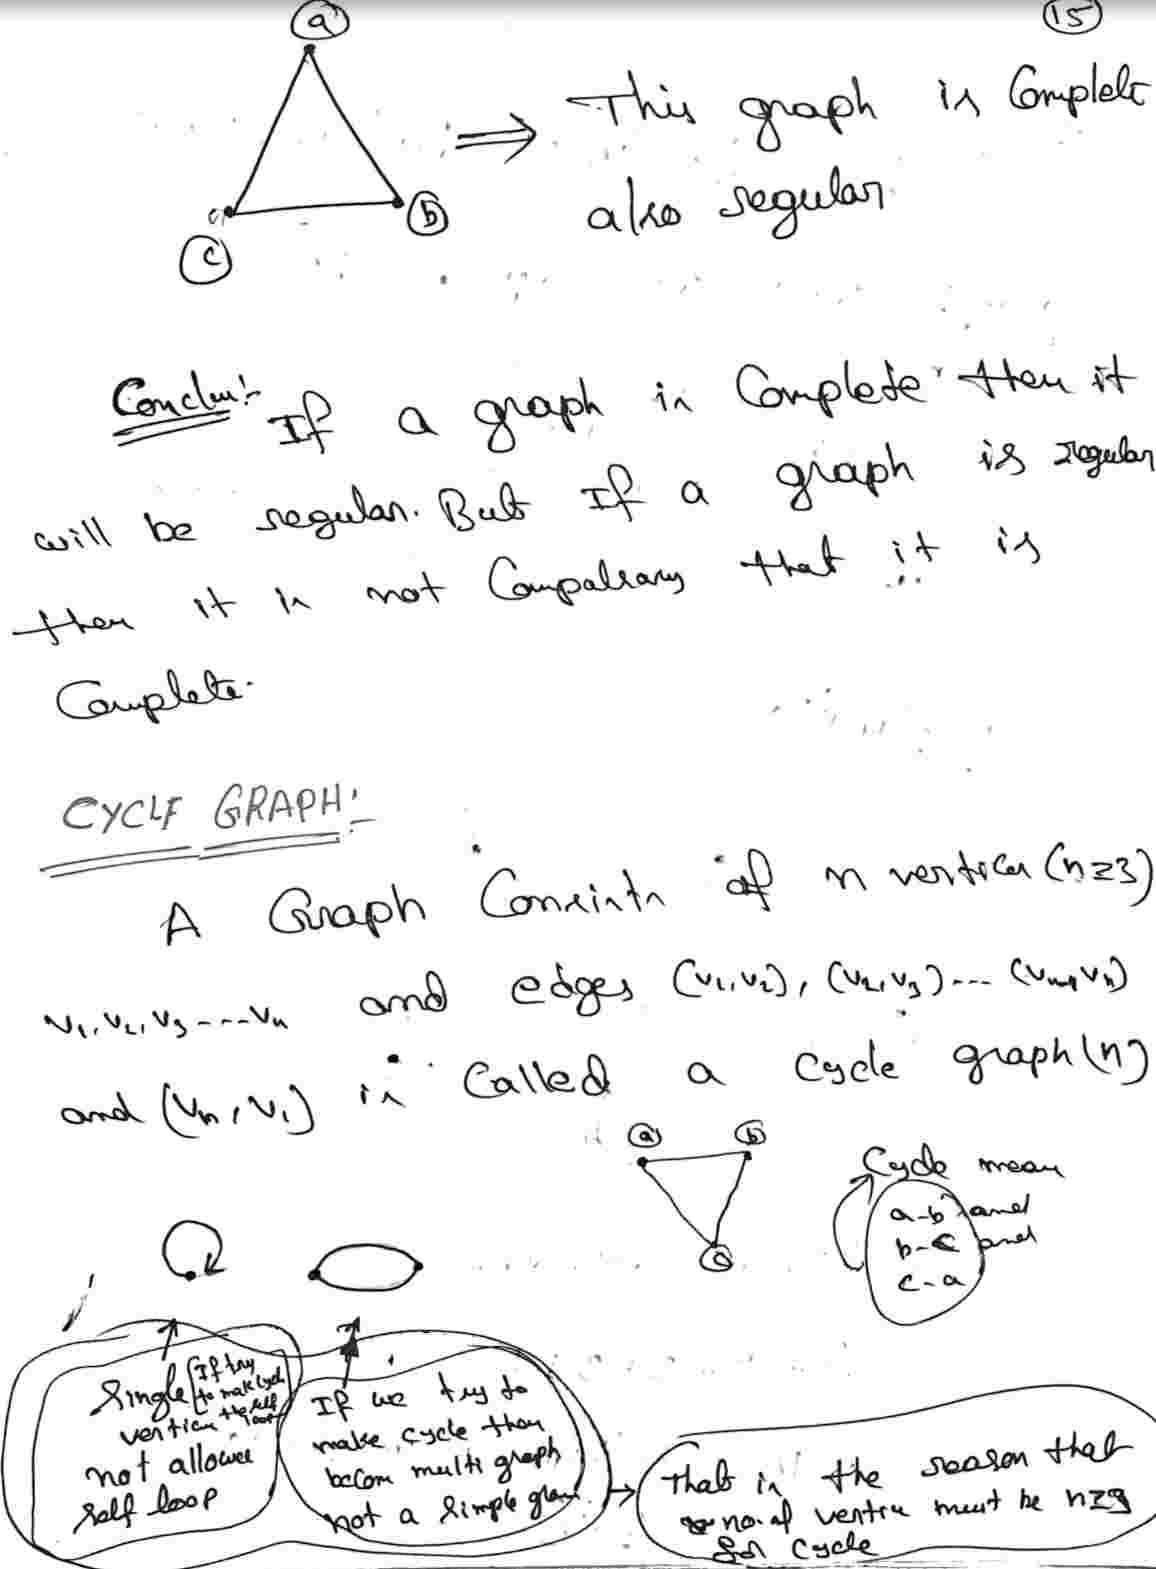 15
a
This graph is Complete
also regular
b
c
Conclu:-
If a graph is Complete then it
will be regular. But If a graph is regular
then it is not Compalsary that it is
Complete.
CYCLE GRAPH:-
A Graph Consists of n vertices (n≥3)
v1, v2, v3 ---- vn and edges (v1, v2), (v2, v3) --- (vn-1, vn)
and (vn, v1) is Called a Cycle graph (n)
a b
c
Cycle mean
a-b and
b-c and
c-a
Single
vertices
not allowed
self loop
If try
to make cycle
the self
loop
If we try to
make cycle then
becom multi graph
not a simple
That is the reason that
no. of vertex must be n≥3
for cycle